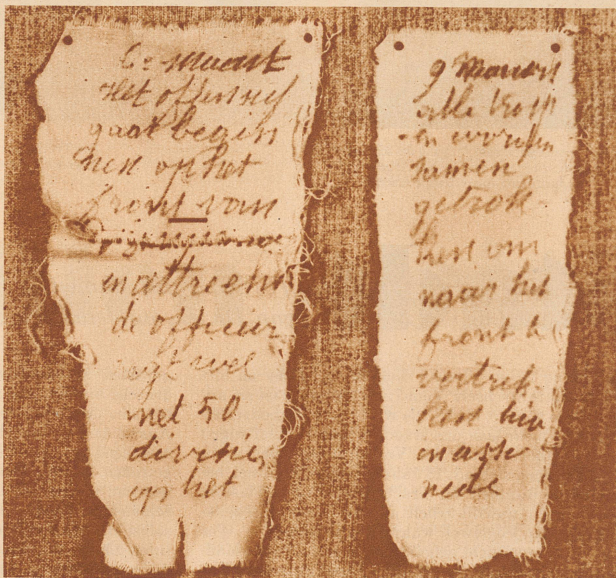 6e maart
Het offensief
gaat begin
nen op het
front van
mattrecht
de officier
zegt wel
met 50
divisies
op het
9 Maart
alle troep
en worden
samen
getrok-
ken om
naar het
front te
vertrek-
ken hier
in asse
nede